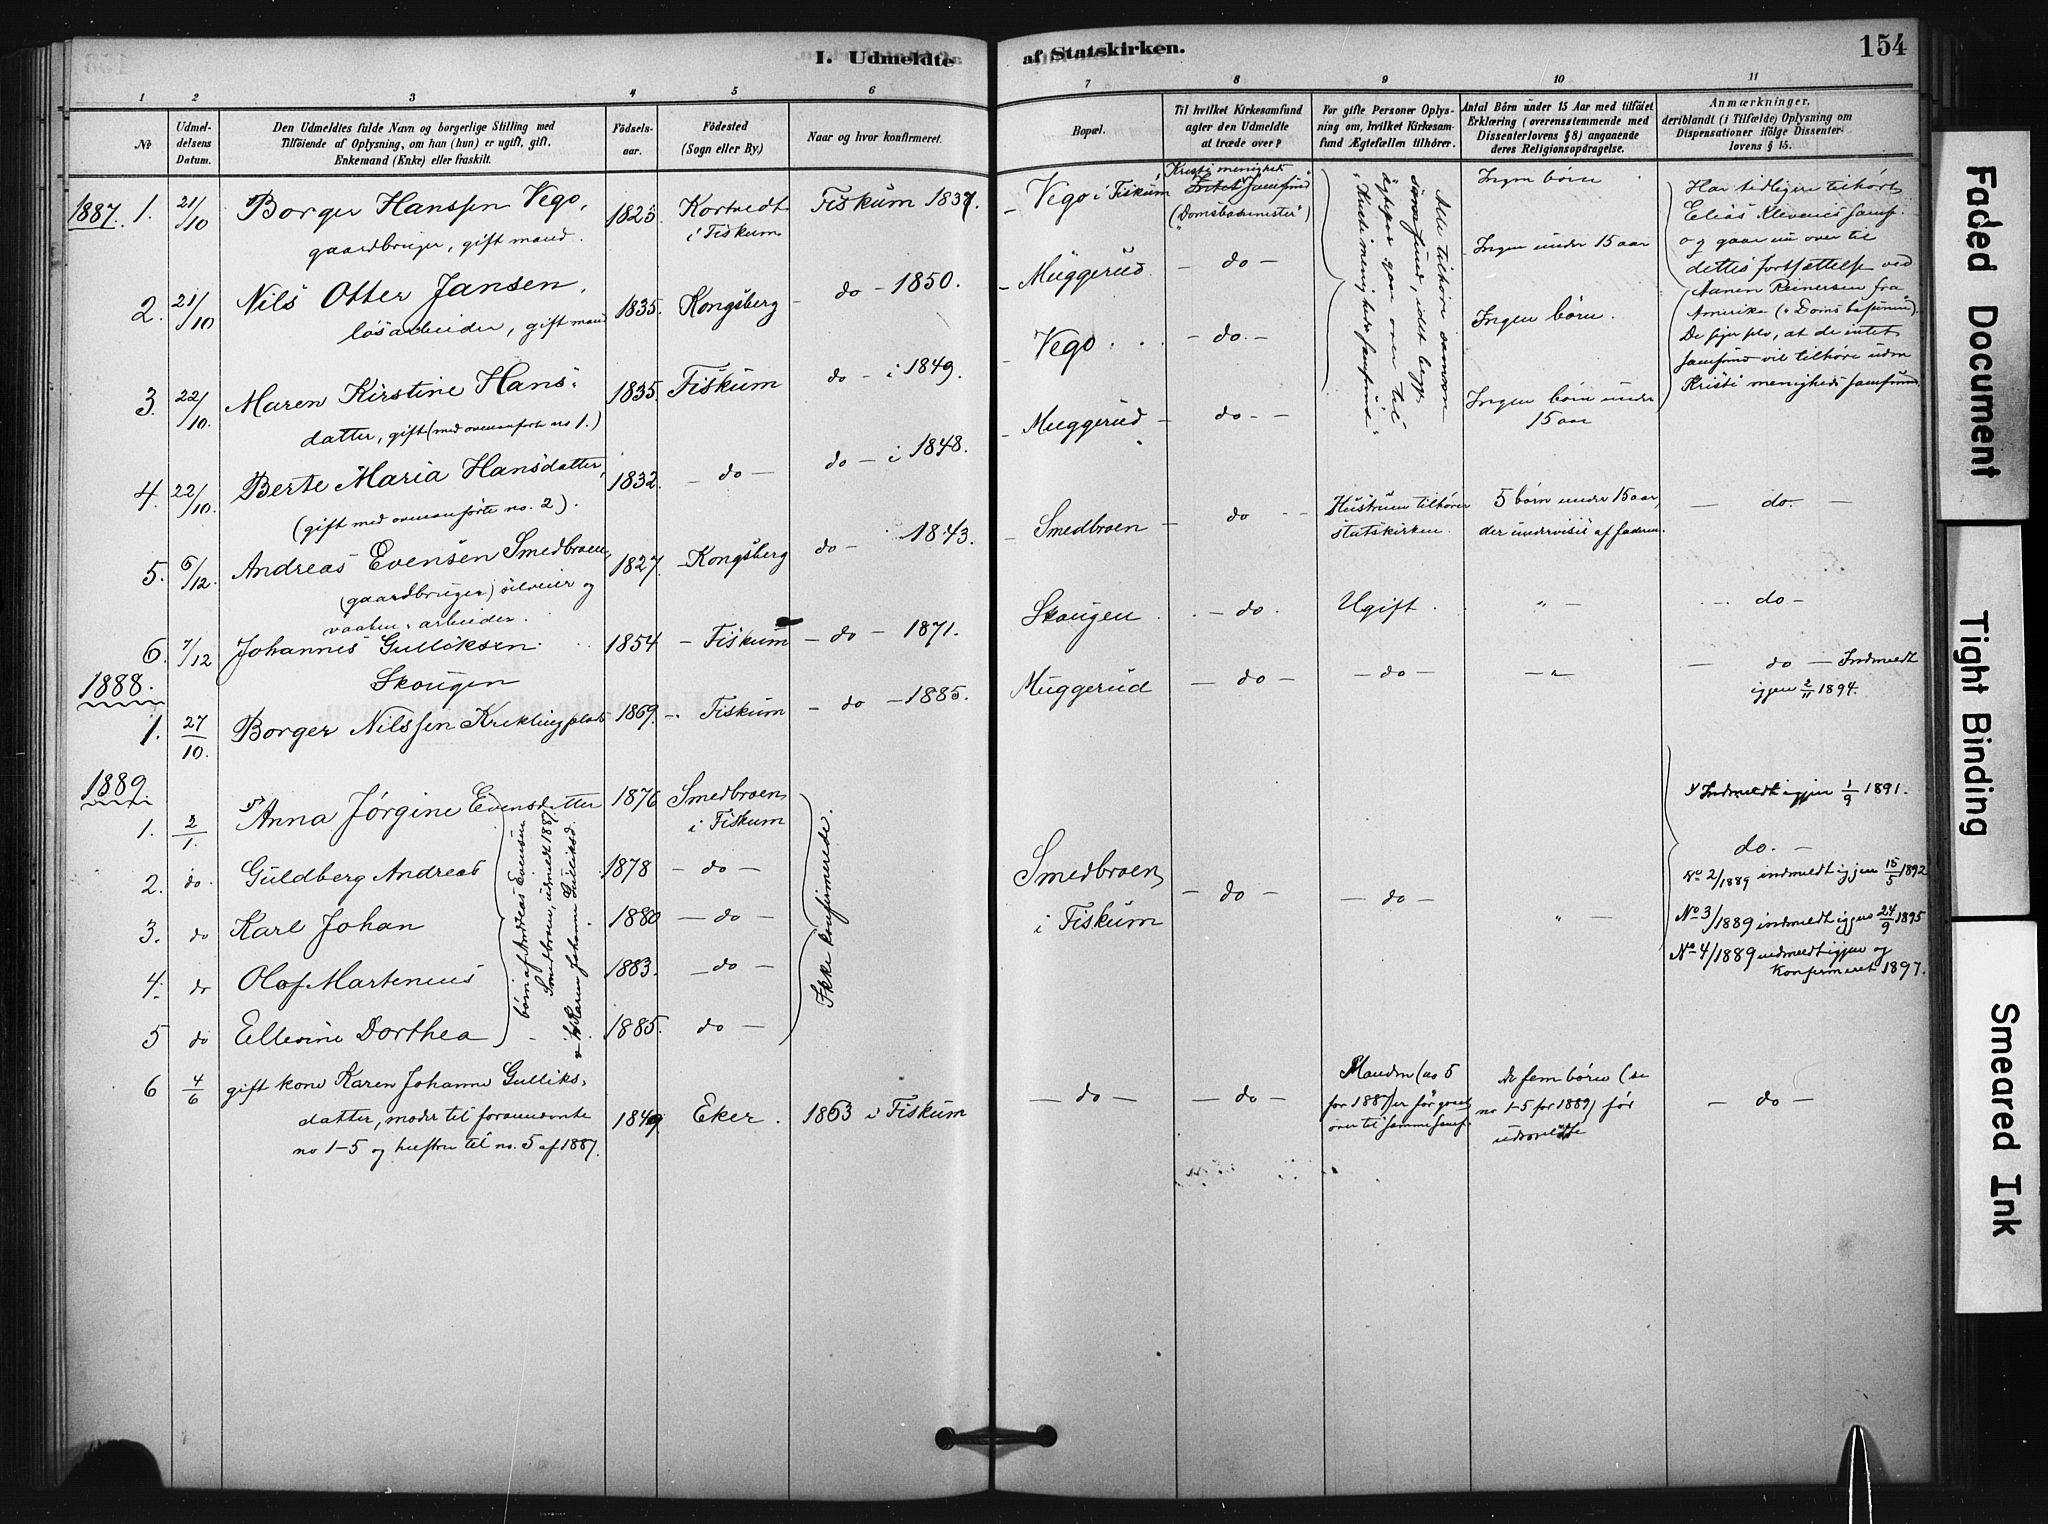 I. Udmeldte af Statskirken.
154
1 2 3 4 5 6 7 8 9 10 11
No
Udmeldelsens Datum.
Den Udmeldtes fulde Navn og borgerlige Stilling med
Tilføiende af Oplysning, om han (hun) er ugift, gift,
Enkemand (Enke) eller fraskilt.
Fødselsaar.
Fødested
(Sogn eller By.)
Naar og hvor konfirmeret.
Bopæl.
Til hvilket Kirkesamfund
agter den Udmeldte
at træde over?
For gifte Personer Oplys-
ning om, hvilket Kirkesam-
fund Ægtefællen tilhører.
Antal Børn under 15 Aar med tilføiet
Erklæring (overensstemmende med
Dissenterlovens § 8) angaaende
deres Religionsopdragelse.
Anmærkninger,
deriblandt (i Tilfælde) Oplysning om
Dispensationer ifølge Dissenter-
lovens § 15.
1887. 1. 21/10 Borger Hanssen Vego, 1823 Kortvedt Fiskum 1837. Vego i Fiskum
gaardbruger, gift mand. i Fiskum
Kristi menigheds Samfund
(Domsbasunister")
Ingen børn
2. 21/10 Nils Otter Jansen, 1835. Kongsberg - do - 1850. Muggerud - do - Ingen under 15 aar
løsarbeider, gift mand
3. 22/10. Maren Kirstine Hans- 1835. Fiskum do - i 1849. Vego - do - Ingen børn.
datter, gift (med ovenanførte no 1.)
4. 22/10. Berte Maria Hansdatter, 1832. - do - do - i 1848. Muggerud - do - Ingen børn under
(gift med ovenanførte no. 2). 15 aar
Alle tilhøre samme
samfund, idet begge
ægtepar gaa over til
"Kristi menigheds samfund"
Har tidligere tilhørt
Elias Klevenes samf.
og gaar nu over til
dettes fortsættelse ved
Maren Reinersen fra
Amerika ("Domsbasunen").
De sige selv, at de intet
samfund vil tilhøre uden
Kristi menigheds samfund.
5. 6/12. Andreas Evensen Smedbroen, 1827. Kongsberg do - 1843. Smedbroen - do - Hustruen tilhører 5 børn under 15 aar, - do. -
(gaardbruger) selveier og statskirken. der undervises af faderen.
vaaben-arbeider.
6. 7/12 Johannes Gulliksen 1854 - Fiskum - do - 1871. Skougen - do. Ugift. " - - do -
Skougen
1888.
1. 27/10. Borger Nilssen Kreklingplads 1869. Fiskum - do - 1885. Muggerud - do - - do - - " - do - Indmeldt
igjen 2/11 1894.
1889
1. 2/1. Anna Jørgine Evensdatter 1876 Smedbroen
i Fiskum
Indmeldt igjen 1/9 1891.
2. do. Guldberg Andreas 1878 - do -
do. -
No 2/1889 indmeldt igjen 15/5 1892
3. do Karl Johan 1880 - do -
No 3/1889 indmeldt igjen 24/9 1895
4. do Olaf Martenius 1883. - do -
No 4/1889 indmeldt igjen og
Konfirmeret 1897.
5 do Ellesine Dorthea 1885. do -
børn af Andreas Evensen
Smedbroen, udmeldt 1887
& h. Karen Johanne Gulliksd.
Ikke konfirmerede.
Smedbroen - do - do - " -
i Fiskum
6 4/6 gift kone Karen Johanne Gulliks-
datter, moder til foranævnte 1849 Eker. 1863 i Fiskum - do - - do -
no 1-5 og hustru til no. 5 af 1887.
Manden (no 5
for 1887) er før gaaet
over til samme samf.
De fem børn (se
no 1-5 for 1889) før
udmeldte
- do -
Faded Document
Tight Binding
Smeared Ink